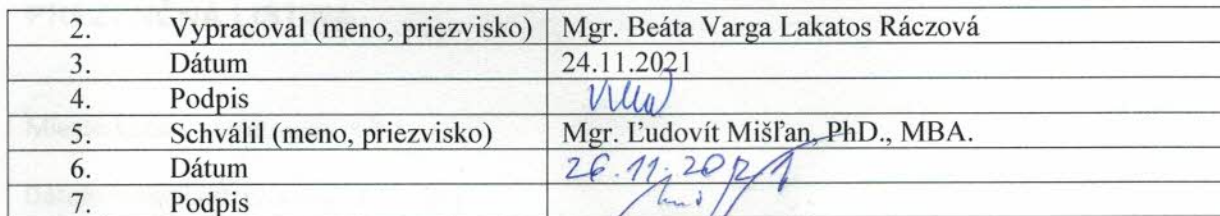 2. Vypracoval (meno, priezvisko) Mgr. Beáta Varga Lakatos Ráczová
3. Dátum 24.11.2021
4. Podpis
5. Schválil (meno, priezvisko) Mgr. Ľudovít Mišľan, PhD., MBA.
6. Dátum 26.11.2021
7. Podpis